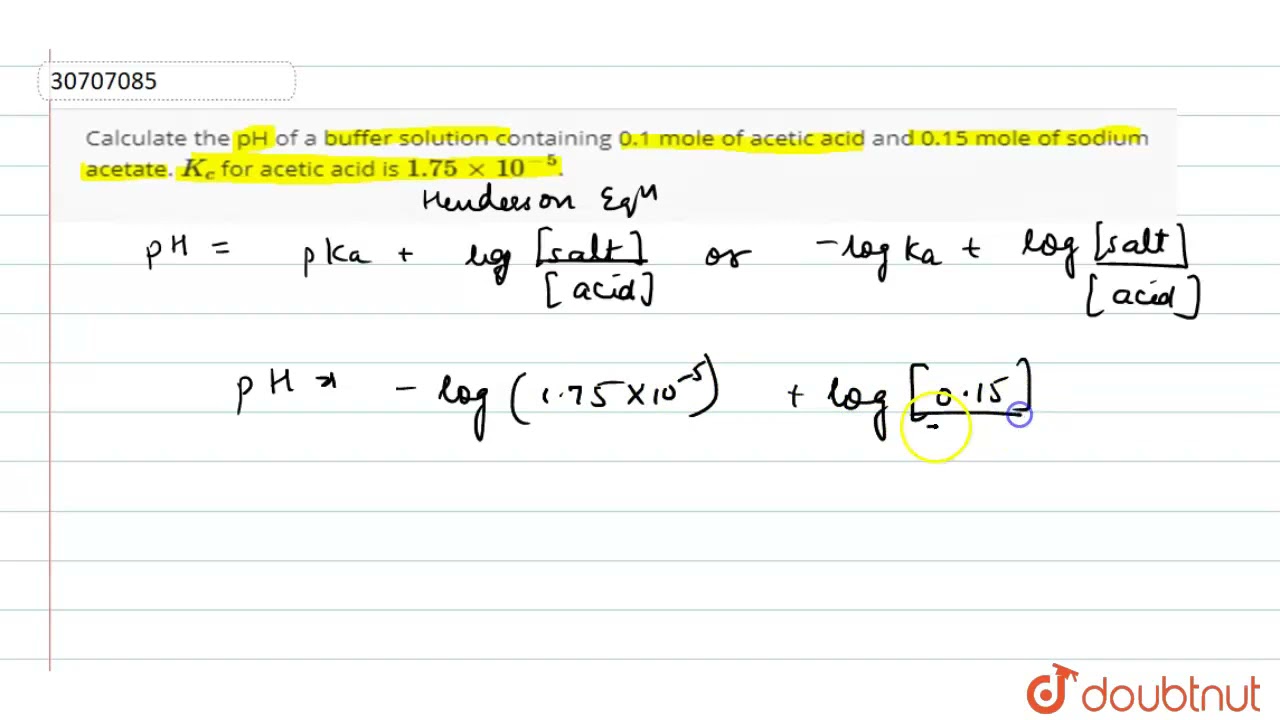 30707085
Calculate the pH of a buffer solution containing 0.1 mole of acetic acid and 0.15 mole of sodium
acetate. K_c for acetic acid is 1.75 × 10^-5.
Henderson Eq^n
pH = pKa + log [salt]/[acid] or -log Ka + log [salt]/[acid]
pH = - log (1.75 × 10^-5) + log [0.15]
doubtnut